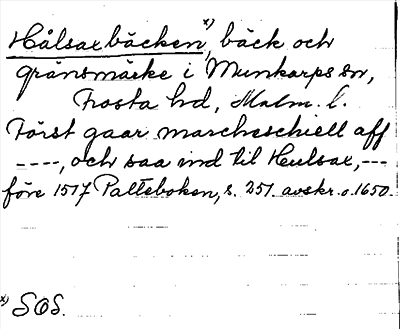 Hålsaxbäcken x), bäck och
gränsmärke i Munkarps sn,
Frosta hd, Malm. l.
Först gaar marcheschiell aff
----, och saa ind til Heulsax,---
före 1517 Palteboken, s. 251. avskr. o. 1650.
x) SOS.